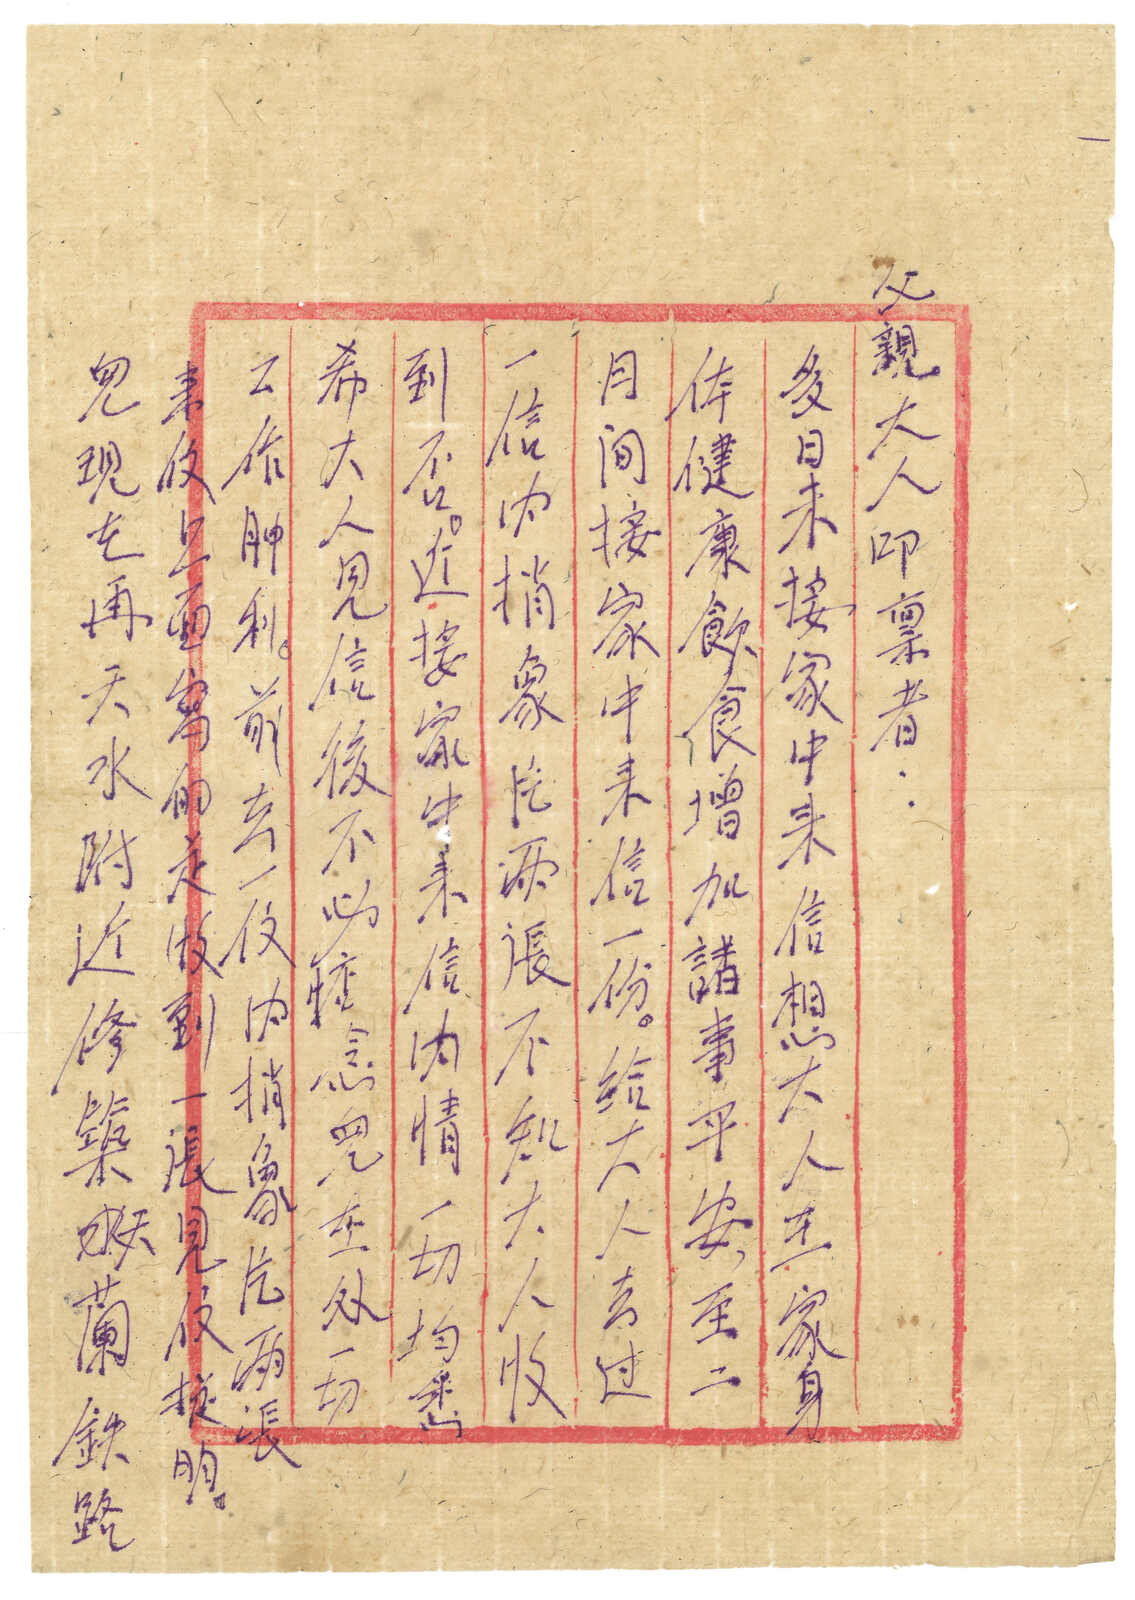 父親大人叩禀者：
多日未接家中来信想大人在家身
体健康飲食增加諸事平安，至二
月间接家中来信一份。给大人去过
一信内捎象片両張不知大人收
到否。近接家中来信内情一切均悉
希大人見信後不必罣念児在外一切
工作順利。前去一信内捎象片両張
来信上面寫的是收到一張見信提明。
児現在再天水附近修築天蘭鉄路